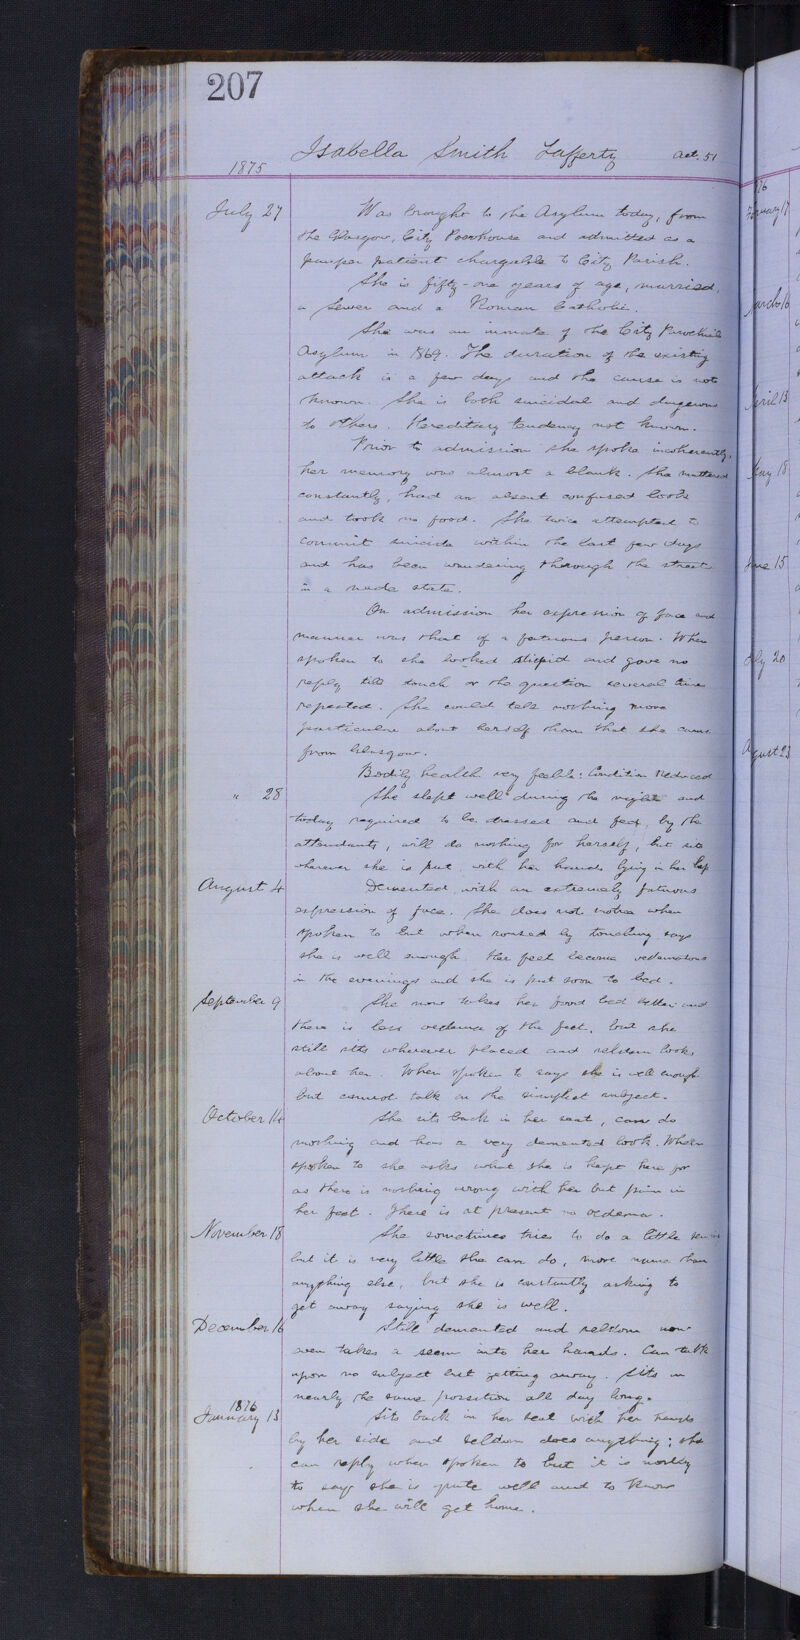 207
Isabella Smith Lafferty aet. 51
1875
July 27 Was brought to the Asylum today, from
the Glasgow, City Poorhouse and admitted as a
pauper patient chargeable to City Parish.
She is fifty-one years of age, married,
a Sewer and a Roman Catholic.
She was an inmate of the City Parochial
Asylum in 1869. The duration of the existing
attack is a few days and the cause is not
known. She is both suicidal and dangerous
to others. Hereditary tendency not known.
Prior to admission she spoke incoherently,
her memory was almost a blank. She muttered
constantly, had an absent confused look
and took no food. She twice attempted to
commit suicide within the last few days
and has been wandering through the streets
in a nude state.
On admission her expression of face and
manner was that of a fatuous person. When
spoken to she looked stupid and gave no
reply till touch or the question several times
repeated. She could tell nothing more
particular about herself than that she came
from Glasgow.
Bodily health very feeble: Condition reduced
" 28 She slept well during the night and
today required to be dressed and fed by the
attendants, will do nothing for herself, but sits
wherever she is put with her hands lying in her lap
August 4 Demented with an extremely fatuous
expression of face. She does not notice when
spoken to but when roused by touching says
she is well enough. Her feet become oedematous
in the evenings and she is put soon to bed.
September 9 She now takes her food better and
there is less oedema of the feet, but she
still sits wherever placed and seldom looks
about her. When spoken to says she is well enough
but cannot talk on the simplest subject.
October 14 She sits back in her seat, can do
nothing and has a very demented look. When
spoken to she asks what she is kept here for
as there is nothing wrong with her but pains in
her feet. There is at present no oedema.
November 18 She sometimes tries to do a little sewing
but it is very little she can do, more than
anything else, but she is constantly asking to
get away saying she is well.
December 16 Still demented and seldom now
even takes a seam into her hands. Can talk
upon no subject but getting away. Sits in
nearly the same possition all day long.
1876
January 13 Sits back in her seat with her hands
by her side and seldom does anything; she
can reply when spoken to but it is mostly
to say she is quite well and to know
when she will get home.
March 16
April 13
May 18
June 15
July 20
August 23